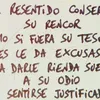 RESENTIDO CONSER
SU RENCOR
MO SI FUERA SU TESO
ES LE DA EXCUSAS
A DARLE RIENDA SUE
A SU ODIO
SENTIRSE JUSTIFICA